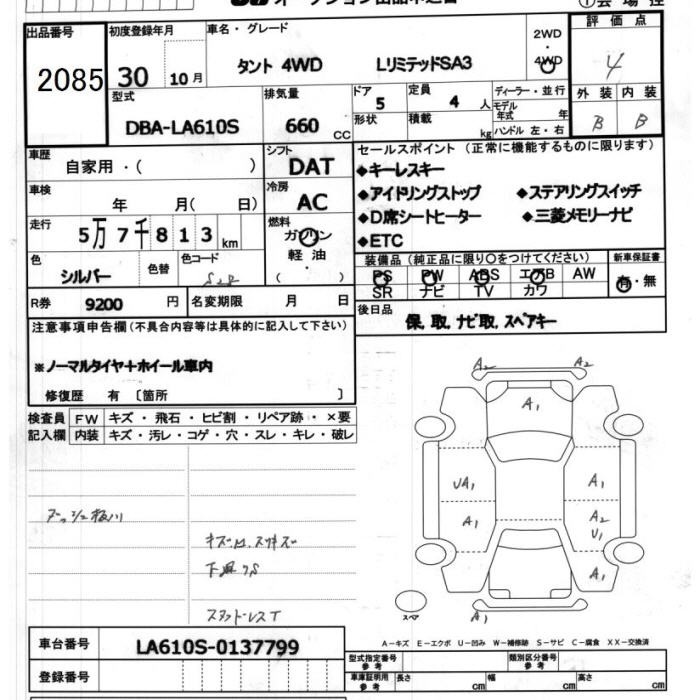 オークション出品申込書
①会場控
出品番号
2085
初度登録年月
30 10月
車名・グレード
タント 4WD LリミテッドSA3
2WD
4WD
評価点
4
型式
DBA-LA610S
排気量
660 CC
ドア
5
定員
4 人
形状
積載
kg
ディーラー・並行
モデル年式 年
ハンドル 左・右
外装
B
内装
B
車歴
自家用・( )
シフト
DAT
セールスポイント (正常に機能するものに限ります)
◆キーレスキー
◆アイドリングストップ ◆ステアリングスイッチ
◆D席シートヒーター ◆三菱メモリーナビ
◆ETC
車検
年 月( 日)
冷房
AC
走行
5万7千813km
燃料
ガソリン
軽油
( )
色
シルバー
色替
色コード
S28
装備品 (純正品に限り○をつけてください)
PS PW ABS エアB AW
SR ナビ TV カワ
新車保証書
有・無
R券
9200 円
名変期限 月 日
後日品
保,取,ナビ取,スペアキー
注意事項申告欄(不具合内容等は具体的に記入して下さい)
※ノーマルタイヤ+ホイール車内
修復歴 有 〔箇所 〕
検査員
記入欄
FW キズ・飛石・ヒビ割・リペア跡・×要
内装 キズ・汚レ・コゲ・穴・スレ・キレ・破レ
キズ凹,スリキズ
下廻りS
スタッドレスT
A2 A2
A1
UA1 A1
A1 A2
U1
A1
A1
スペア
A-キズ E-エクボ U-凹み W-補修跡 S-サビ C-腐食 XX-交換済
車台番号
LA610S-0137799
登録番号
型式指定番号
参考
類別区分番号
参考
車庫証明用
参考
長さ cm 幅 cm 高さ cm